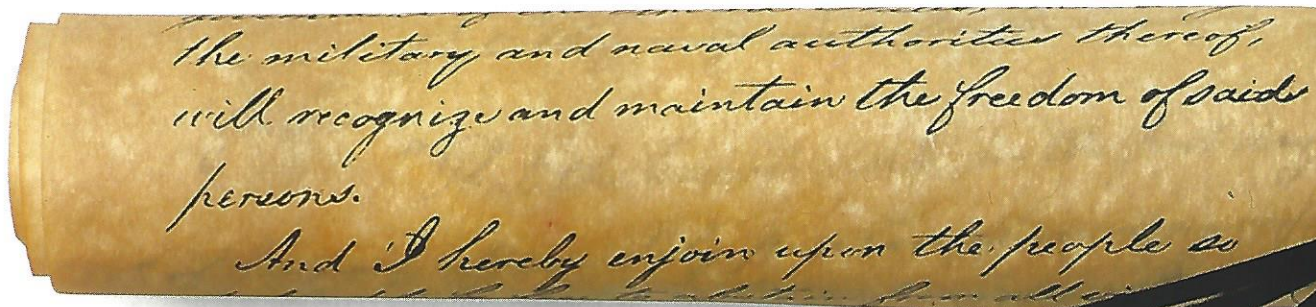 the military and naval authorities thereof,
will recognize and maintain the freedom of said
persons.
And I hereby enjoin upon the people so